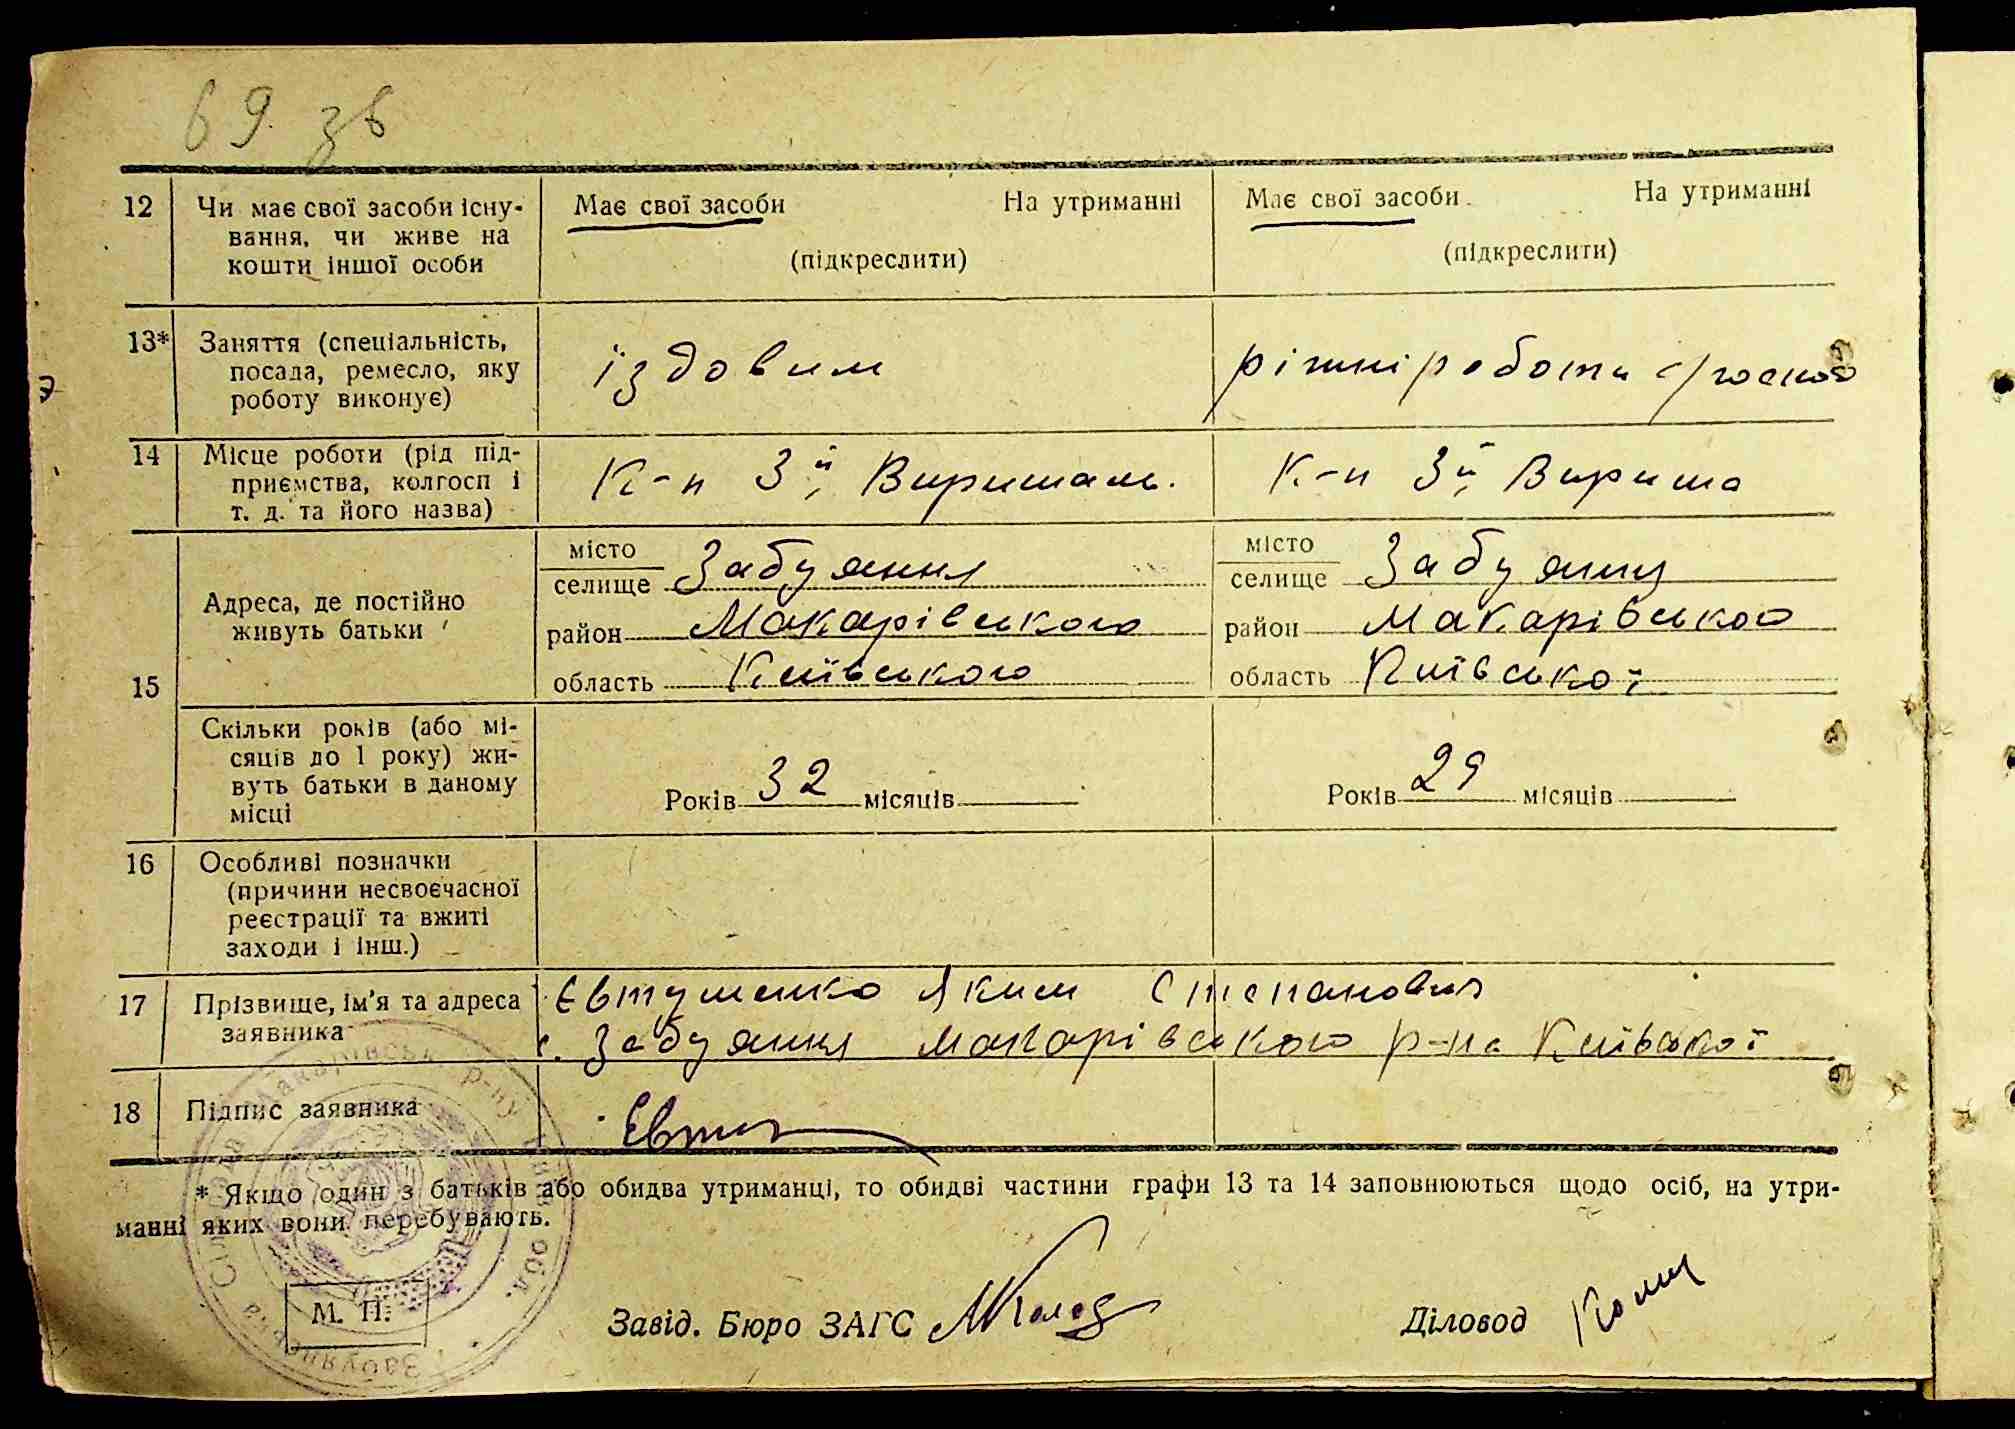 69 зв
12 Чи має свої засоби існу-
вання, чи живе на
кошти іншої особи
Має свої засоби На утриманні
(підкреслити)
Має свої засоби На утриманні
(підкреслити)
13* Заняття (спеціальність,
посада, ремесло, яку
роботу виконує)
їздовим
ріжні роботи
14 Місце роботи (рід під-
приємства, колгосп і
т. д. та його назва)
К-п 3й Виришаль.
К-п 3й Вириша
15 Адреса, де постійно
живуть батьки
місто
селище Забуяння
район Макарівського
область Київського
місто
селище Забуяння
район Макарівського
область Київської
Скільки років (або мі-
сяців до 1 року) жи-
вуть батьки в даному
місці
Років 32 місяців
Років 29 місяців
16 Особливі позначки
(причини несвоєчасної
реєстрації та вжиті
заходи і інш.)
17 Прізвище, ім'я та адреса
заявника
Євтушенко Яким Степанович
с. Забуяння Макарівського р-на Київської
18 Підпис заявника
* Якщо один з батьків або обидва утриманці, то обидві частини графи 13 та 14 заповнюються щодо осіб, на утри-
манні яких вони перебувають.
М. П.
Завід. Бюро ЗАГС
Діловод